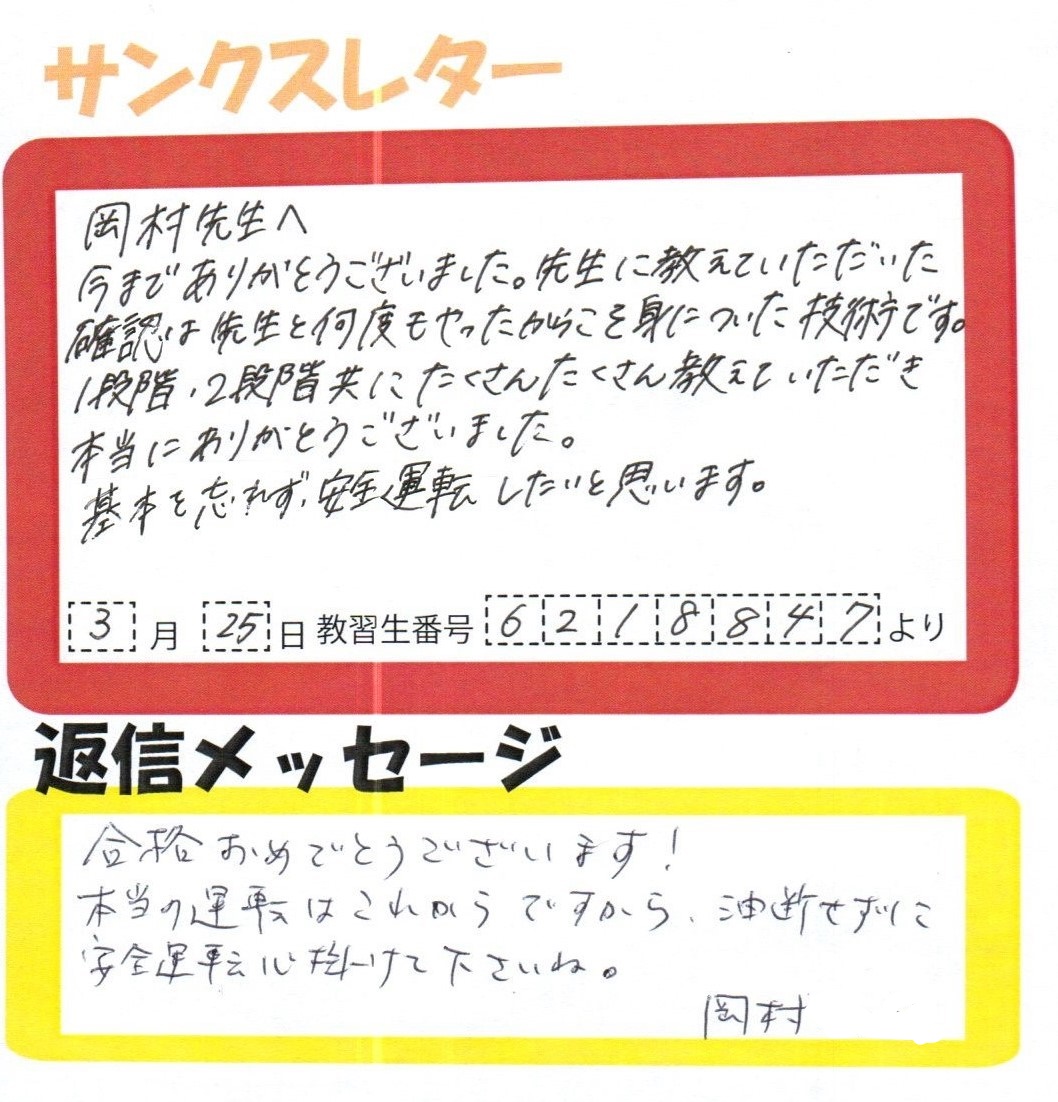 サンクスレター
岡村先生へ
今までありがとうございました。先生に教えていただいた
確認は先生と何度もやったからこそ身についた技術です。
1段階、2段階共にたくさんたくさん教えていただき
本当にありがとうございました。
基本を忘れず、安全運転したいと思います。
3月25日教習生番号6218847より
返信メッセージ
合格おめでとうございます!
本当の運転はこれからですから、油断せずに
安全運転心掛けて下さいね。
岡村